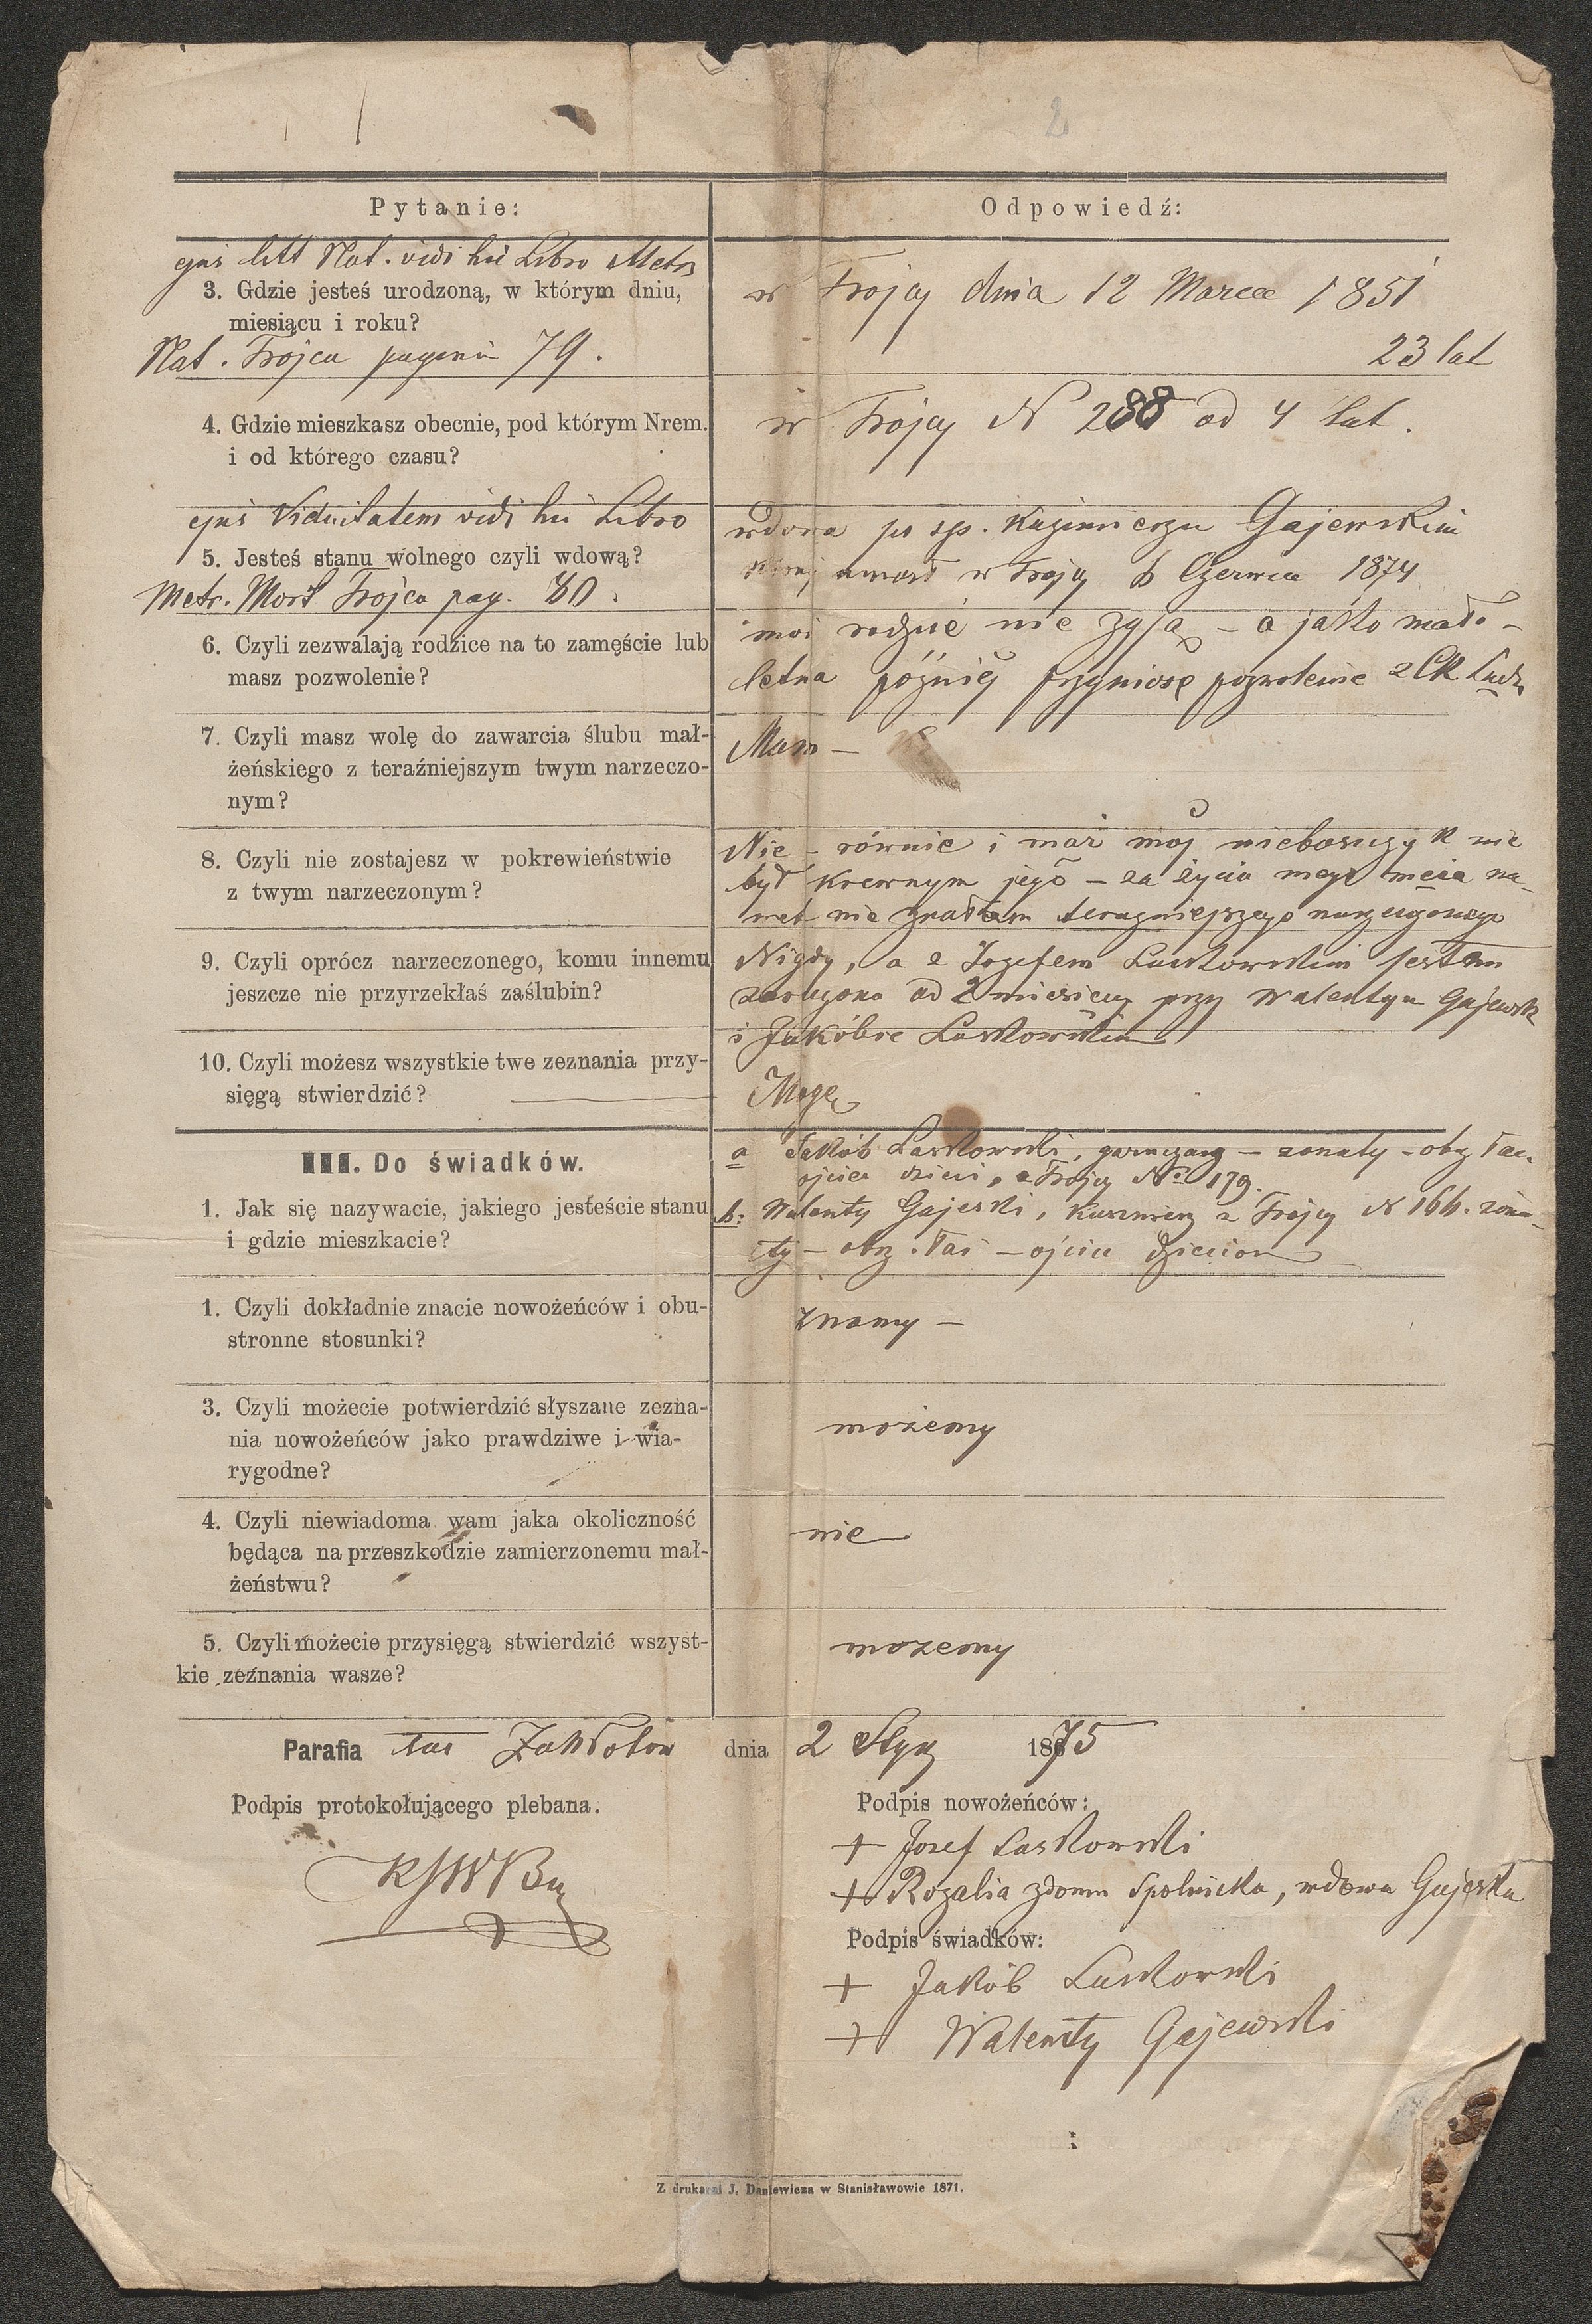 2
Pytanie:
Odpowiedź:
ejus litt Nat. vidi hic Libro Metr
3. Gdzie jesteś urodzoną, w którym dniu,
miesiącu i roku?
Nat. Trojca pagina 79.
w Trojcy dnia 12 Marca 1851
23 lat
4. Gdzie mieszkasz obecnie, pod którym Nrem.
i od którego czasu?
w Trojcy N 288 od 4 lat.
ejus Viduitatem vidi hic Libro
5. Jesteś stanu wolnego czyli wdową?
Metr. Mort Trojca pag. 80.
wdowa po sp. Kazimierzu Gajewskim
który umarł w Trojcy 6 Czerwca 1874
6. Czyli zezwalają rodzice na to zamęście lub
masz pozwolenie?
moi rodzice nie żyją – a jako mało-
letna później przyniosę pozwolenie z CK Sądu
7. Czyli masz wolę do zawarcia ślubu mał-
żeńskiego z teraźniejszym twym narzeczo-
nym?
Mam –
8. Czyli nie zostajesz w pokrewieństwie
z twym narzeczonym?
Nie – równie i mąż mój nieboszczyk nie
był krewnym jego – za życia mego męża na-
wet nie znałam teraźniejszego narzeczonego
9. Czyli oprócz narzeczonego, komu innemu
jeszcze nie przyrzekłaś zaślubin?
Nigdy, a z Jozefem Laskowskim jestem
zaręczona od 2 miesięcy przy Walentym Gajewsk
i Jakóbie Laskowskim
10. Czyli możesz wszystkie twe zeznania przy-
sięgą stwierdzić?
Mogę
III. Do świadków.
1. Jak się nazywacie, jakiego jesteście stanu
i gdzie mieszkacie?
a Jakób Laskowski, garncarz – zonaty – obrz łac.
ojciec dzieci, z Trojcy No 179.
b: Walenty Gajeski, Kusznierz z Trojcy N 166. żona-
ty – obrz. łac – ojciec dzieciom
1. Czyli dokładnie znacie nowożeńców i obu-
stronne stosunki?
znamy –
3. Czyli możecie potwierdzić słyszane zezna-
nia nowożeńców jako prawdziwe i wia-
rygodne?
możemy
4. Czyli niewiadoma wam jaka okoliczność
będąca na przeszkodzie zamierzonemu mał-
żeństwu?
nie
5. Czyli możecie przysięgą stwierdzić wszyst-
kie zeznania wasze?
mozemy
Parafia łac Zabłotow dnia 2 Stycz 1875
Podpis protokołującego plebana.
Podpis nowożeńców:
+ Jozef Laskowski
+ Rozalia zdomu Spolnicka, wdowa Gajeska
Podpis świadków:
+ Jakób Laskowski
+ Walenty Gajewski
Z drukarni J. Daniewicza w Stanisławowie 1871.